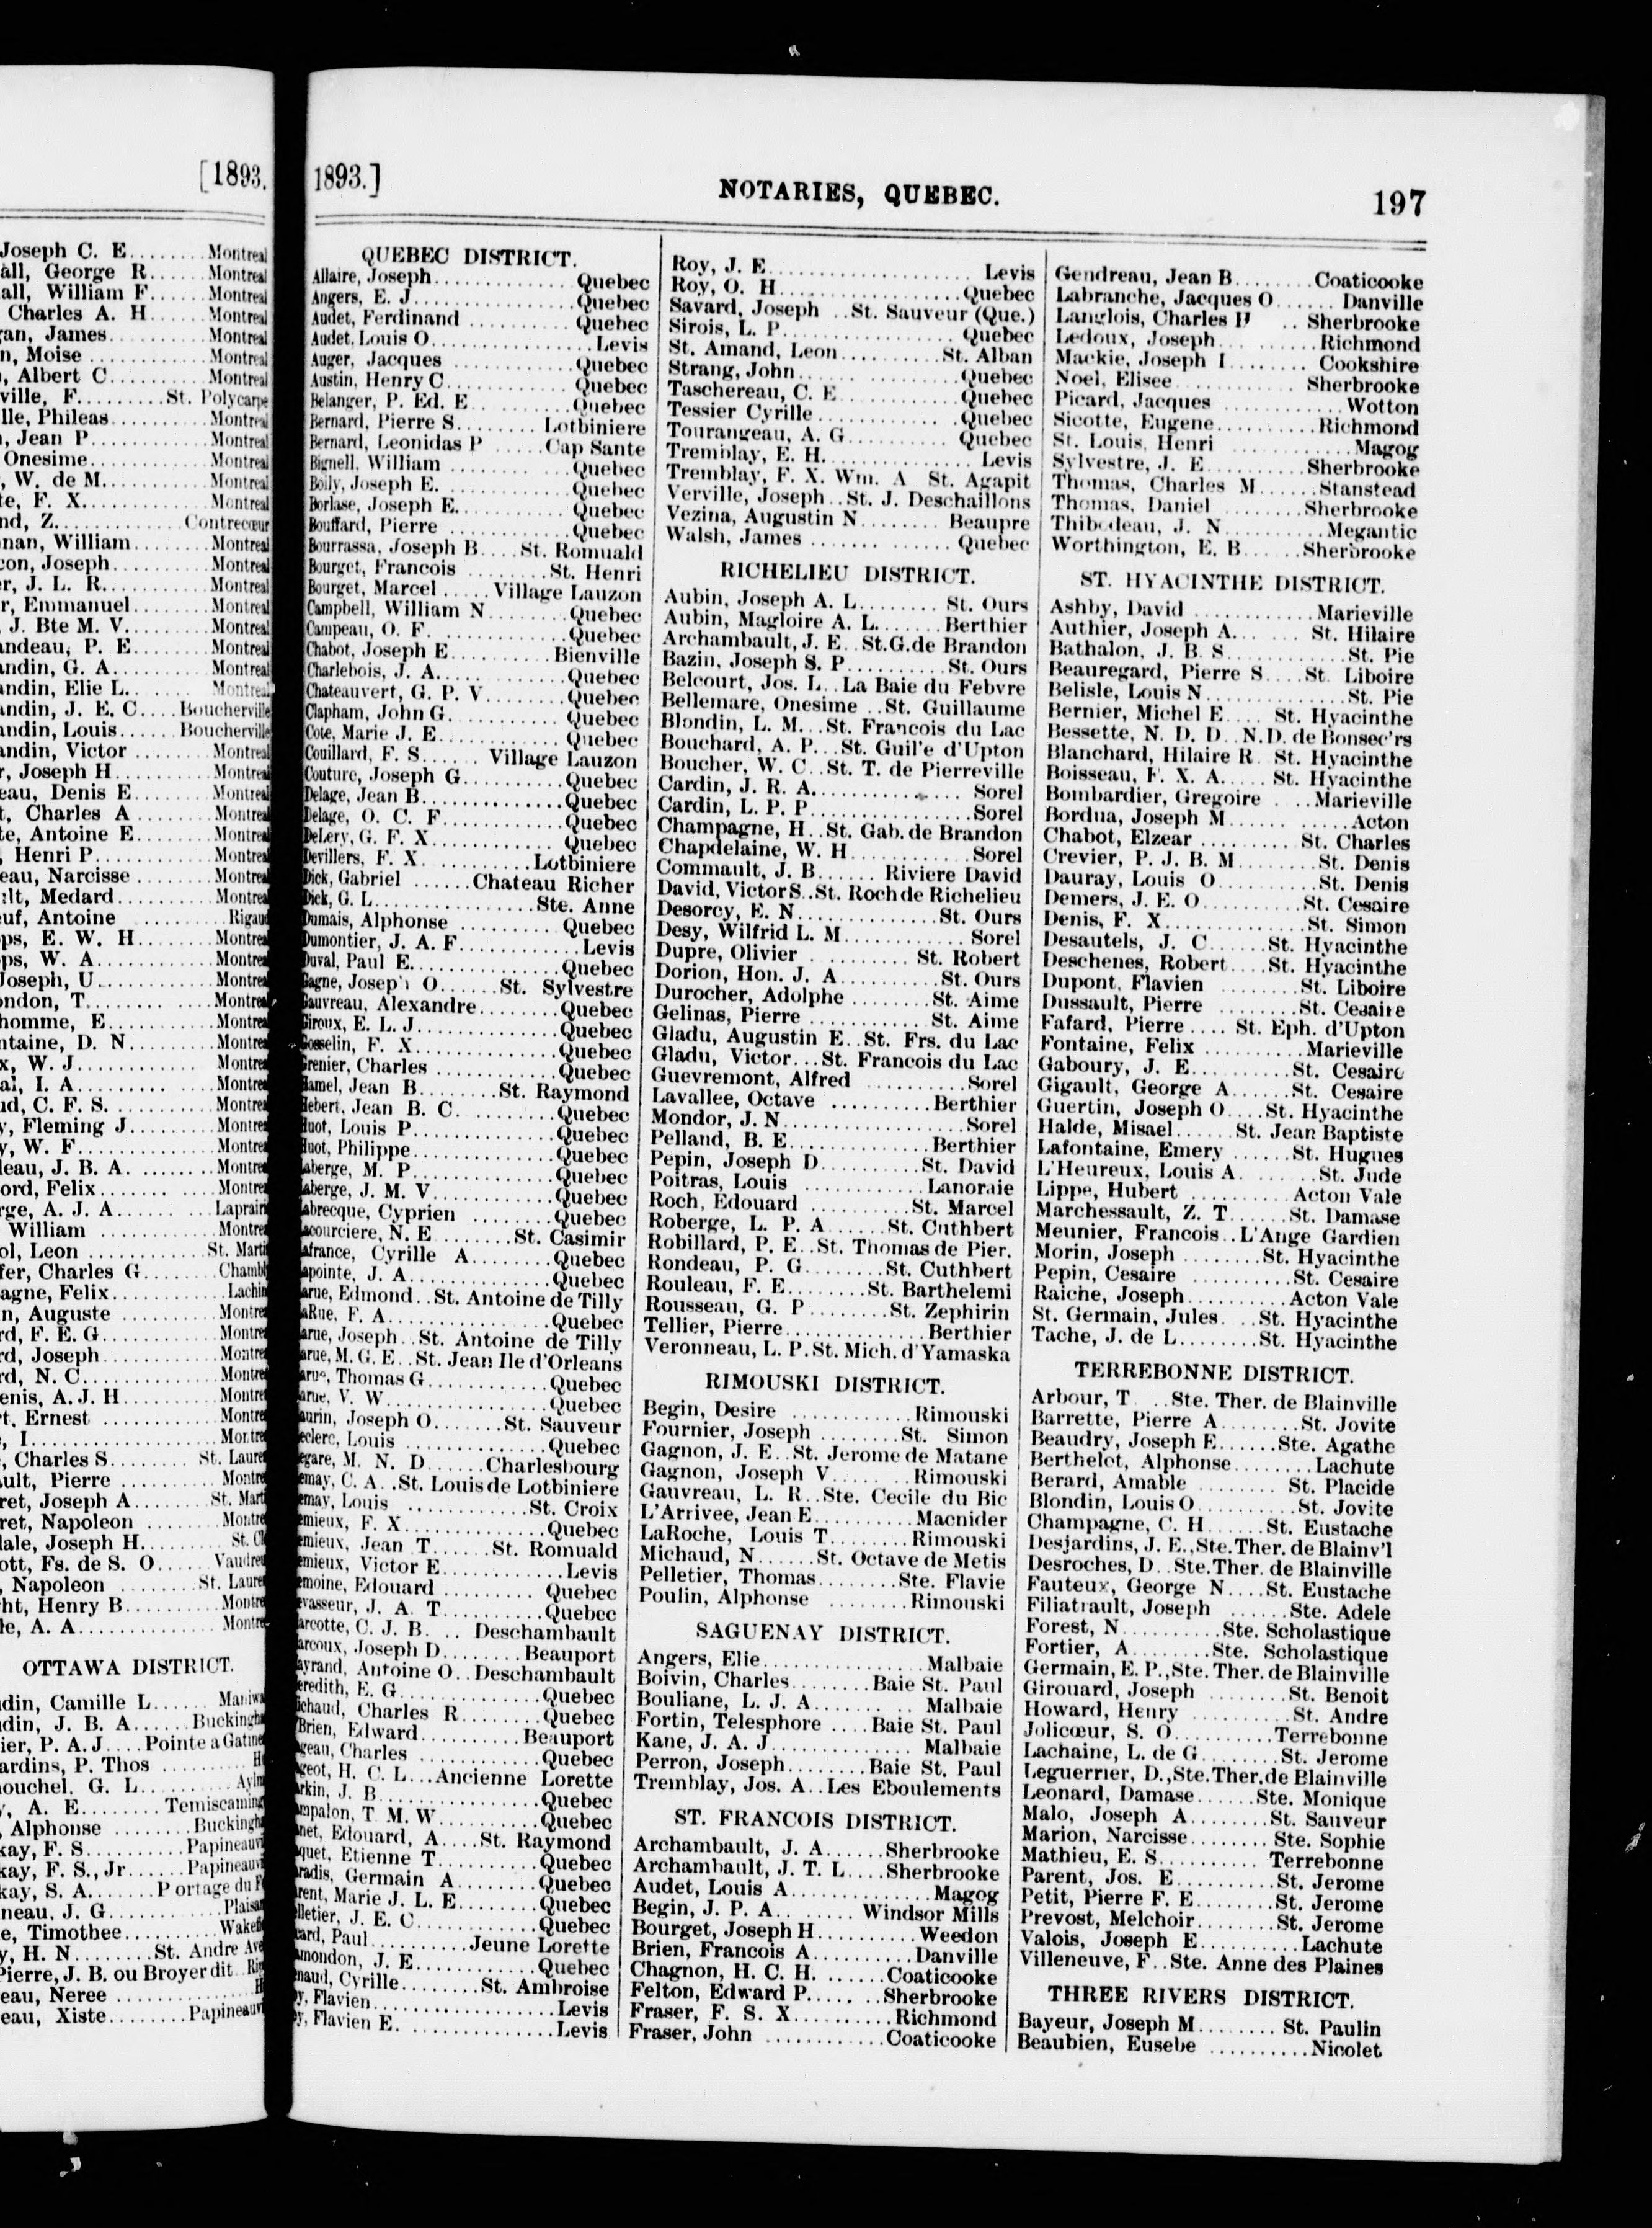 [1893.
Joseph C. E........Montreal
all, George R......Montreal
all, William F......Montreal
Charles A. H......Montreal
an, James..........Montreal
n, Moise ............Montreal
, Albert C..........Montreal
ville, F.........St. Polycarpe
lle, Phileas.........Montreal
, Jean P............Montreal
Onesime............Montreal
, W. de M..........Montreal
te, F. X............Montreal
nd, Z............Contrecœur
nan, William.......Montreal
con, Joseph.........Montreal
er, J. L. R..........Montreal
r, Emmanuel.......Montreal
J. Bte M. V........Montreal
andeau, P. E.......Montreal
andin, G. A.........Montreal
andin, Elie L.......Montreal
andin, J. E. C....Boucherville
andin, Louis......Boucherville
andin, Victor .......Montreal
r, Joseph H.........Montreal
eau, Denis E........Montreal
t, Charles A ........Montreal
te, Antoine E.......Montreal
, Henri P...........Montreal
eau, Narcisse .......Montreal
ult, Medard.........Montreal
uf, Antoine .........Rigaud
ps, E. W. H........Montreal
ps, W. A............Montreal
Joseph, U...........Montreal
ondon, T............Montreal
homme, E..........Montreal
ntaine, D. N........Montreal
x, W. J.............Montreal
al, I. A.............Montreal
ud, C. F. S..........Montreal
y, Fleming J........Montreal
y, W. F.............Montreal
eau, J. B. A.........Montreal
ord, Felix...........Montreal
rge, A. J. A.........Laprairi
William ............Montre
ol, Leon ...........St. Marti
fer, Charles G.......Chambl
agne, Felix...........Lachin
n, Auguste ..........Montre
rd, F. E. G..........Montre
rd, Joseph...........Montre
rd, N. C.............Montre
enis, A. J. H........Montre
t, Ernest ............Montre
, I..................Montre
, Charles S.........St. Laure
ult, Pierre ..........Montre
ret, Joseph A.......St. Mart
ret, Napoleon .......Montre
dale, Joseph H.........St. Cl
ott, Fs. de S. O......Vaudreu
, Napoleon ........St. Laure
ht, Henry B.........Montre
le, A. A.............Montre
OTTAWA DISTRICT.
din, Camille L......Maniwa
din, J. B. A......Buckingha
ier, P. A. J....Pointe a Gatine
ardins, P. Thos ..........H
ouchel, G. L...........Aylm
, A. E........Temiscaming
, Alphonse ........Buckingh
kay, F. S..........Papineauvi
kay, F. S., Jr......Papineauvi
kay, S. A.......Portage du F
neau, J. G............Plaisan
e, Timothee..........Wakefi
y, H. N........St. Andre Ave
Pierre, J. B. ou Broyer dit..Rip
eau, Neree ..............H
eau, Xiste........Papineauvi
1893.]
NOTARIES, QUEBEC.
197
QUEBEC DISTRICT.
Allaire, Joseph.............Quebec
Angers, E. J...............Quebec
Audet, Ferdinand ..........Quebec
Audet, Louis O...............Levis
Auger, Jacques ............Quebec
Austin, Henry C............Quebec
Belanger, P. Ed. E..........Quebec
Bernard, Pierre S........Lotbiniere
Bernard, Leonidas P .....Cap Sante
Bignell, William ...........Quebec
Boily, Joseph E.............Quebec
Borlase, Joseph E...........Quebec
Bouffard, Pierre ............Quebec
Bourrassa, Joseph B....St. Romuald
Bourget, Francois ........St. Henri
Bourget, Marcel .....Village Lauzon
Campbell, William N........Quebec
Campeau, O. F. ............Quebec
Chabot, Joseph E..........Bienville
Charlebois, J. A............Quebec
Chateauvert, G. P. V.......Quebec
Clapham, John G...........Quebec
Cote, Marie J. E............Quebec
Couillard, F. S......Village Lauzon
Couture, Joseph G..........Quebec
Delage, Jean B..............Quebec
Delage, O. C. F............Quebec
DeLery, G. F. X............Quebec
Devillers, F. X...........Lotbiniere
Dick, Gabriel ......Chateau Richer
Dick, G. L................Ste. Anne
Dumais, Alphonse ..........Quebec
Dumontier, J. A. F...........Levis
Duval, Paul E..............Quebec
Gagne, Joseph O......St. Sylvestre
Gauvreau, Alexandre........Quebec
Giroux, E. L. J.............Quebec
Gosselin, F. X..............Quebec
Grenier, Charles ............Quebec
Hamel, Jean B........St. Raymond
Hebert, Jean B. C..........Quebec
Huot, Louis P..............Quebec
Huot, Philippe..............Quebec
aberge, M. P..............Quebec
aberge, J. M. V...........Quebec
abrecque, Cyprien ........Quebec
acourciere, N. E........St. Casimir
afrance, Cyrille A........Quebec
apointe, J. A..............Quebec
arue, Edmond..St. Antoine de Tilly
aRue, F. A................Quebec
arue, Joseph..St. Antoine de Tilly
arue, M. G. E..St. Jean Ile d'Orleans
arue, Thomas G............Quebec
arue, V. W................Quebec
aurin, Joseph O.......St. Sauveur
eclerc, Louis ..............Quebec
egare, M. N. D......Charlesbourg
emay, C. A...St. Louis de Lotbiniere
emay, Louis ............St. Croix
emieux, F. X..............Quebec
emieux, Jean T......St. Romuald
emieux, Victor E............Levis
emoine, Edouard .........Quebec
evasseur, J. A. T..........Quebec
arcotte, C. J. B. ..Deschambault
arcoux, Joseph D........Beauport
ayrand, Antoine O..Deschambault
eredith, E. G..............Quebec
ichaud, Charles R........Quebec
Brien, Edward..........Beauport
geau, Charles ............Quebec
geot, H. C. L...Ancienne Lorette
rkin, J. B................Quebec
mpalon, T. M. W..........Quebec
net, Edouard, A....St. Raymond
quet, Etienne T..........Quebec
radis, Germain A........Quebec
rent, Marie J. L. E........Quebec
lletier, J. E. C............Quebec
ard, Paul..........Jeune Lorette
mondon, J. E............Quebec
naud, Cyrille........St. Ambroise
y, Flavien..................Levis
y, Flavien E. ..............Levis
Roy, J. E....................Levis
Roy, O. H.................Quebec
Savard, Joseph ..St. Sauveur (Que.)
Sirois, L. P.................Quebec
St. Amand, Leon..........St. Alban
Strang, John................Quebec
Taschereau, C. E............Quebec
Tessier Cyrille..............Quebec
Tourangeau, A. G..........Quebec
Tremblay, E. H...............Levis
Tremblay, F. X. Wm. A St. Agapit
Verville, Joseph..St. J. Deschaillons
Vezina, Augustin N........Beaupre
Walsh, James ..............Quebec
RICHELIEU DISTRICT.
Aubin, Joseph A. L........St. Ours
Aubin, Magloire A. L.......Berthier
Archambault, J. E..St.G.de Brandon
Bazin, Joseph S. P..........St. Ours
Belcourt, Jos. L..La Baie du Febvre
Bellemare, Onesime ..St. Guillaume
Blondin, L. M...St. Francois du Lac
Bouchard, A. P...St. Guil'e d'Upton
Boucher, W. C..St. T. de Pierreville
Cardin, J. R. A...............Sorel
Cardin, L. P. P................Sorel
Champagne, H..St. Gab. de Brandon
Chapdelaine, W. H............Sorel
Commault, J. B......Riviere David
David, Victor S..St. Roch de Richelieu
Desorcy, E. N..............St. Ours
Desy, Wilfrid L. M............Sorel
Dupre, Olivier ..........St. Robert
Dorion, Hon. J. A..........St. Ours
Durocher, Adolphe ........St. Aime
Gelinas, Pierre ............St. Aime
Gladu, Augustin E..St. Frs. du Lac
Gladu, Victor...St. Francois du Lac
Guevremont, Alfred ..........Sorel
Lavallee, Octave ..........Berthier
Mondor, J. N..................Sorel
Pelland, B. E..............Berthier
Pepin, Joseph D..........St. David
Poitras, Louis ............Lanoraie
Roch, Edouard ..........St. Marcel
Roberge, L. P. A......St. Cuthbert
Robillard, P. E..St. Thomas de Pier.
Rondeau, P. G........St. Cuthbert
Rouleau, F. E........St. Barthelemi
Rousseau, G. P........St. Zephirin
Tellier, Pierre..............Berthier
Veronneau, L. P.St. Mich. d'Yamaska
RIMOUSKI DISTRICT.
Begin, Desire ............Rimouski
Fournier, Joseph ........St. Simon
Gagnon, J. E..St. Jerome de Matane
Gagnon, Joseph V........Rimouski
Gauvreau, L. R..Ste. Cecile du Bic
L'Arrivee, Jean E..........Macnider
LaRoche, Louis T........Rimouski
Michaud, N......St. Octave de Metis
Pelletier, Thomas........Ste. Flavie
Poulin, Alphonse ........Rimouski
SAGUENAY DISTRICT.
Angers, Elie................Malbaie
Boivin, Charles........Baie St. Paul
Bouliane, L. J. A............Malbaie
Fortin, Telesphore ....Baie St. Paul
Kane, J. A. J...............Malbaie
Perron, Joseph........Baie St. Paul
Tremblay, Jos. A..Les Eboulements
ST. FRANCOIS DISTRICT.
Archambault, J. A......Sherbrooke
Archambault, J. T. L....Sherbrooke
Audet, Louis A..............Magog
Begin, J. P. A........Windsor Mills
Bourget, Joseph H..........Weedon
Brien, Francois A..........Danville
Chagnon, H. C. H. ......Coaticooke
Felton, Edward P........Sherbrooke
Fraser, F. S. X..........Richmond
Fraser, John ............Coaticooke
Gendreau, Jean B........Coaticooke
Labranche, Jacques O......Danville
Langlois, Charles H ..Sherbrooke
Ledoux, Joseph..........Richmond
Mackie, Joseph I........Cookshire
Noel, Elisee............Sherbrooke
Picard, Jacques ............Wotton
Sicotte, Eugene..........Richmond
St. Louis, Henri ............Magog
Sylvestre, J. E..........Sherbrooke
Thomas, Charles M......Stanstead
Thomas, Daniel ........Sherbrooke
Thibodeau, J. N..........Megantic
Worthington, E. B......Sherbrooke
ST. HYACINTHE DISTRICT.
Ashby, David ............Marieville
Authier, Joseph A.......St. Hilaire
Bathalon, J. B. S............St. Pie
Beauregard, Pierre S....St. Liboire
Belisle, Louis N..............St. Pie
Bernier, Michel E....St. Hyacinthe
Bessette, N. D. D..N.D. de Bonsec'rs
Blanchard, Hilaire R. St. Hyacinthe
Boisseau, F. X. A.....St. Hyacinthe
Bombardier, Gregoire ....Marieville
Bordua, Joseph M............Acton
Chabot, Elzear ..........St. Charles
Crevier, P. J. B. M........St. Denis
Dauray, Louis O..........St. Denis
Demers, J. E. O..........St. Cesaire
Denis, F. X..............St. Simon
Desautels, J. C......St. Hyacinthe
Deschenes, Robert....St. Hyacinthe
Dupont, Flavien ........St. Liboire
Dussault, Pierre ........St. Cesaire
Fafard, Pierre....St. Eph. d'Upton
Fontaine, Felix ..........Marieville
Gaboury, J. E..........St. Cesaire
Gigault, George A......St. Cesaire
Guertin, Joseph O....St. Hyacinthe
Halde, Misael......St. Jean Baptiste
Lafontaine, Emery ......St. Hugues
L'Heureux, Louis A........St. Jude
Lippe, Hubert ..........Acton Vale
Marchessault, Z. T......St. Damase
Meunier, Francois..L'Ange Gardien
Morin, Joseph ........St. Hyacinthe
Pepin, Cesaire ..........St. Cesaire
Raiche, Joseph..........Acton Vale
St. Germain, Jules....St. Hyacinthe
Tache, J. de L........St. Hyacinthe
TERREBONNE DISTRICT.
Arbour, T....Ste. Ther. de Blainville
Barrette, Pierre A........St. Jovite
Beaudry, Joseph E......Ste. Agathe
Berthelot, Alphonse........Lachute
Berard, Amable ........St. Placide
Blondin, Louis O..........St. Jovite
Champagne, C. H......St. Eustache
Desjardins, J. E.,Ste.Ther. de Blainv'l
Desroches, D..Ste.Ther. de Blainville
Fauteux, George N....St. Eustache
Filiatrault, Joseph ......Ste. Adele
Forest, N..........Ste. Scholastique
Fortier, A........Ste. Scholastique
Germain, E. P.,Ste.Ther. de Blainville
Girouard, Joseph ........St. Benoit
Howard, Henry ..........St. Andre
Jolicœur, S. O..........Terrebonne
Lachaine, L. de G........St. Jerome
Leguerrier, D.,Ste.Ther.de Blainville
Leonard, Damase......Ste. Monique
Malo, Joseph A........St. Sauveur
Marion, Narcisse........Ste. Sophie
Mathieu, E. S..........Terrebonne
Parent, Jos. E..........St. Jerome
Petit, Pierre F. E........St. Jerome
Prevost, Melchoir........St. Jerome
Valois, Joseph E..........Lachute
Villeneuve, F..Ste. Anne des Plaines
THREE RIVERS DISTRICT.
Bayeur, Joseph M........St. Paulin
Beaubien, Eusebe ..........Nicolet